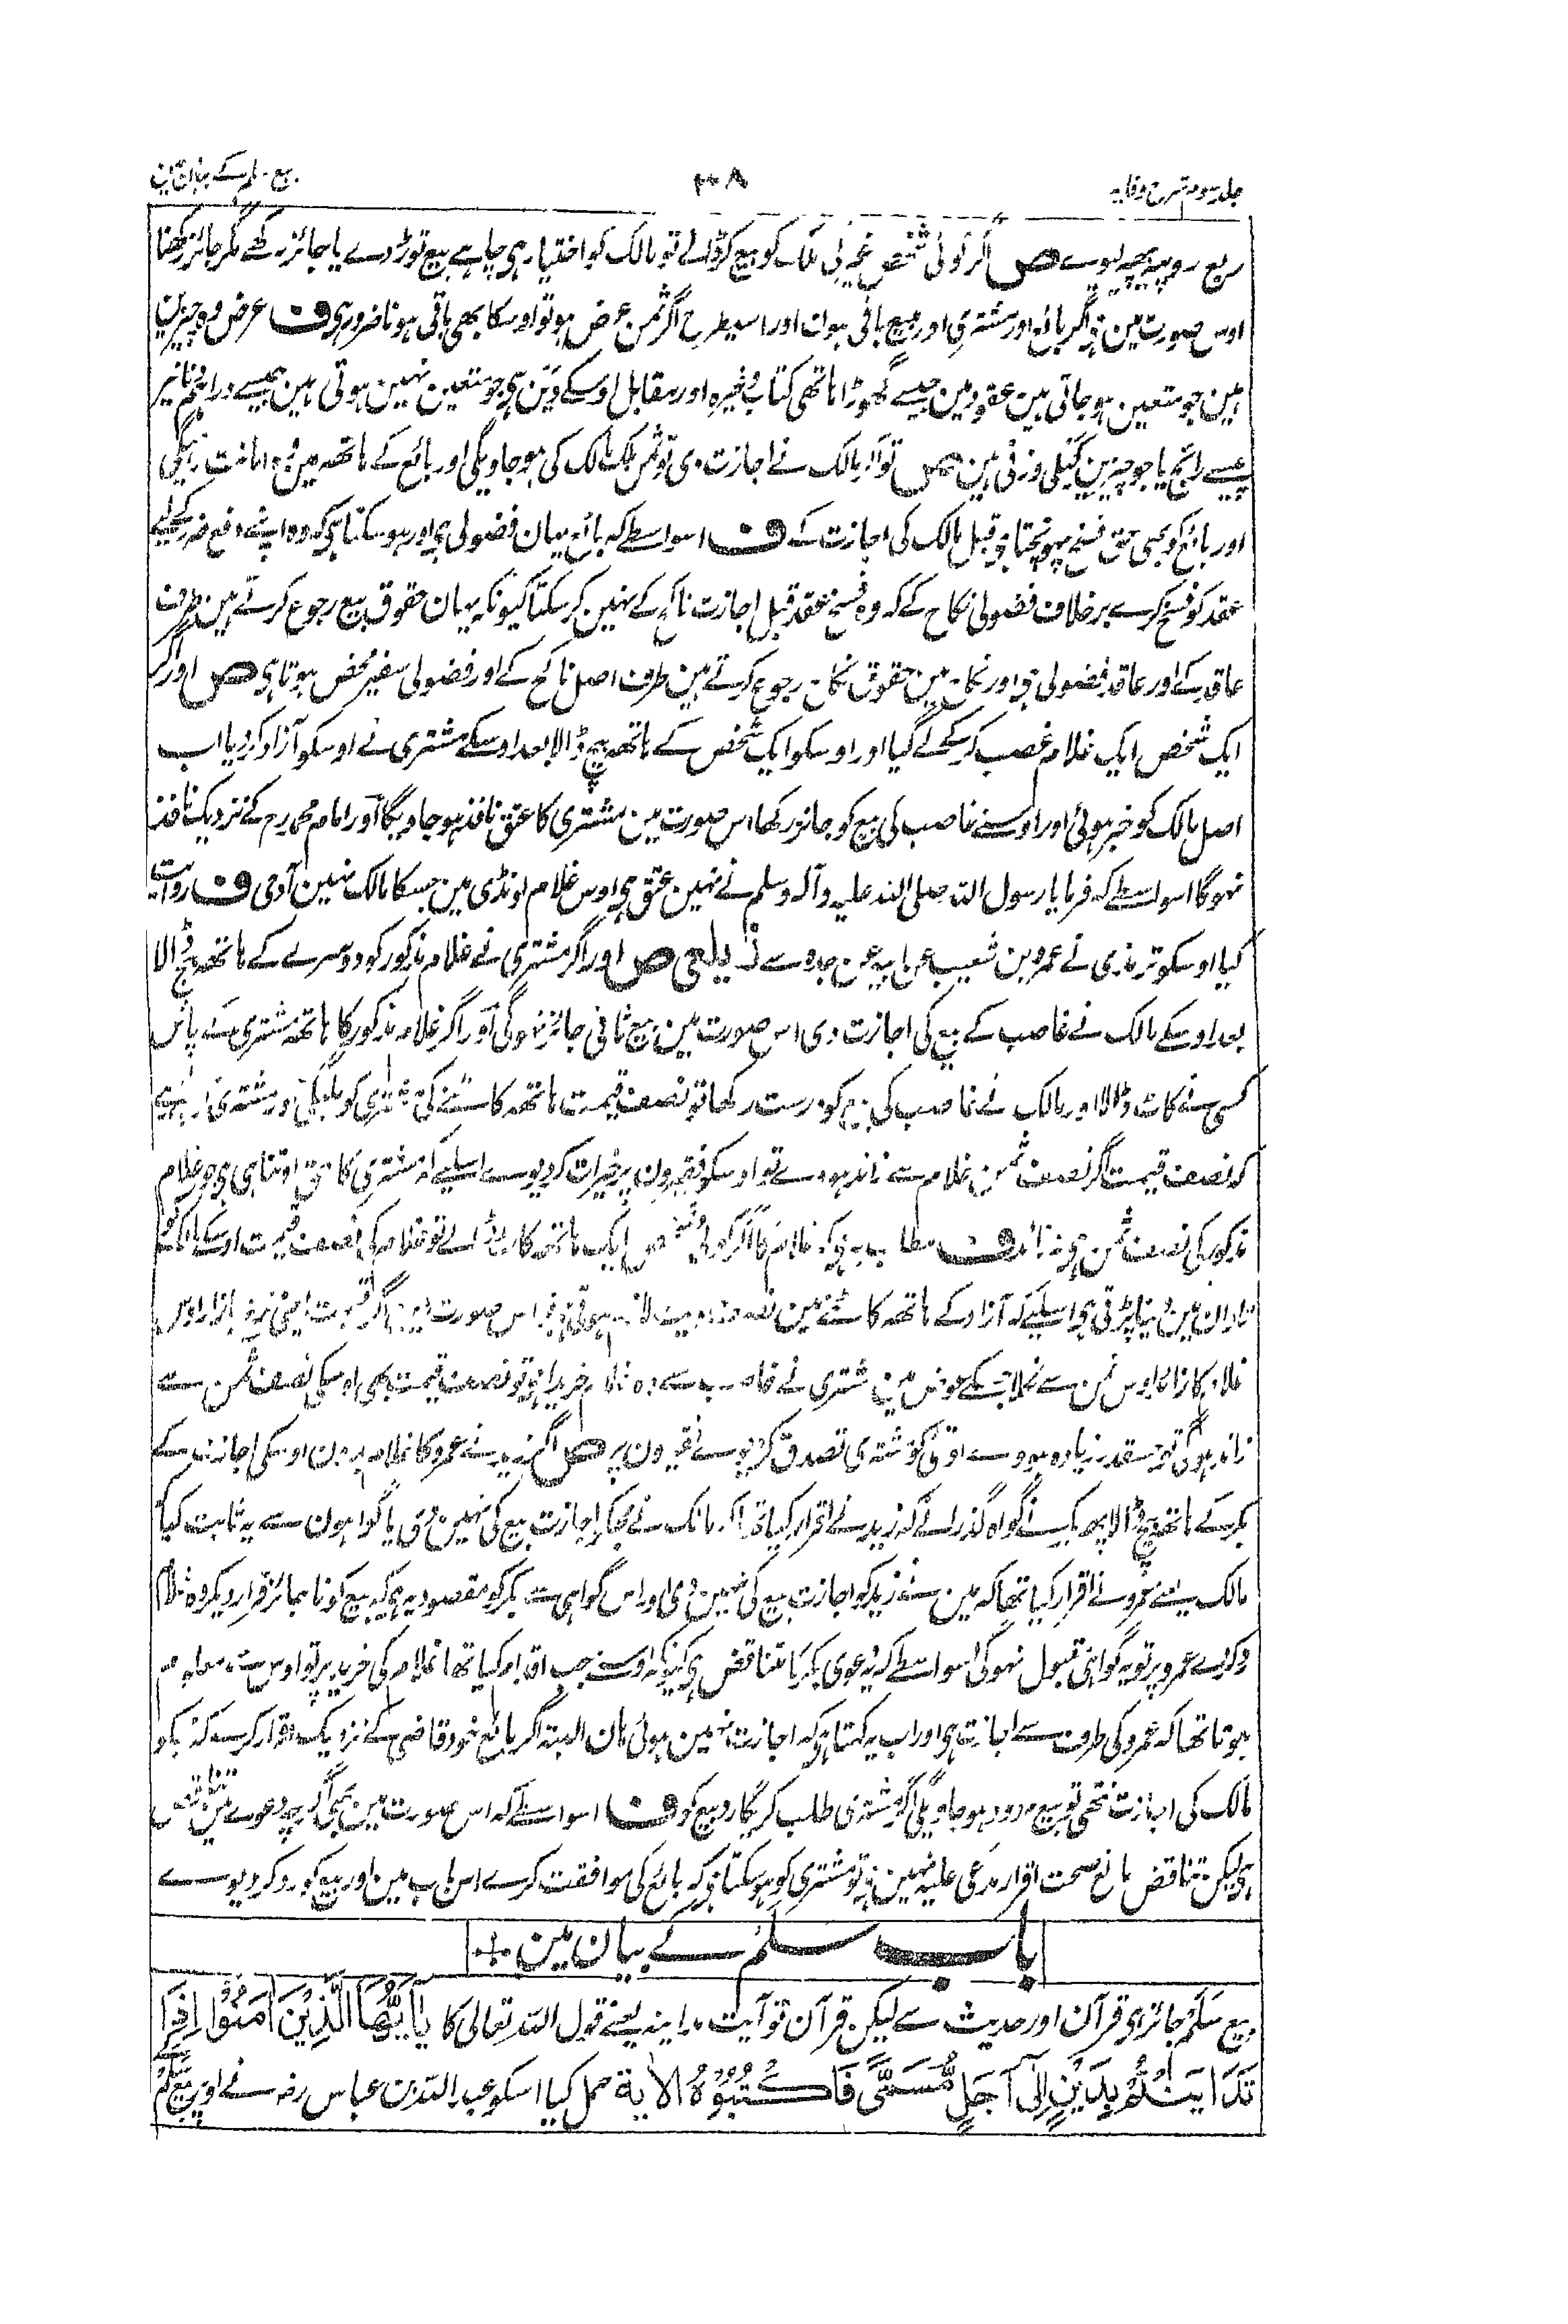 جلد سوم شرح وقایہ
۳۰۸
بیع سلم کے بیان مین
ربع روپیہ پھیر لیوے ص اگر کوئی شخص غیر کی ملک کو بیع کر ڈالے تو مالک کو اختیار ہی چاہے بیع توڑ دے یا جائز رکھے مگر جائز رکھنا
اوس صورت مین ہی اگر بائع اور مشتری اور مبیع باقی ہوں اور اسیطرح اگر ثمن عرض ہو تو اوسکا بھی باقی ہونا ضروری ف عرض وہ چیزین
ہین جو متعین ہو جاتی ہین عقود مین جیسے گھوڑا ہاتھی کتاب وغیرہ اور مقابل اوسکے دین ہی جو متعین نہین ہوتی ہین جیسے دراہم دنانیر
پیسے رائج یا جو چیزین کیلی وزنی ہین ص تو اگر مالک نے اجازت دی تو ثمن ملک مالک کی ہو جاویگی اور بائع کے ہاتھ مین وہ امانت رہیگی
اور بائع کو بھی حق فسخ پہونچتا ہی قبل مالک کی اجازت کے ف اسواسطے کہ بائع یہان فضولی ہی اور ہو سکتا ہی کہ وہ اپنے دفع ضرر کے لیے
عقد کو فسخ کرے برخلاف فضولی نکاح کے کہ وہ فسخ عقد قبل اجازت ناکح کے نہین کر سکتا کیونکہ یہان حقوق بیع رجوع کرتے ہین طرف
عاقد کے اور عاقد فضولی ہی اور نکاح مین حقوق نکاح رجوع کرتے ہین طرف اصل ناکح کے اور فضولی سفیر محض ہوتا ہی ص اور اگر
ایک شخص ایک غلام غصب کر کے لے گیا اور اوسکو ایک شخص کے ہاتھ بیچ ڈالا بعد اوسکے مشتری نے اوسکو آزاد کر دیا اب
اصل مالک کو خبر ہوئی اور اوسنے غاصب کی بیع کو جائز رکھا اس صورت مین مشتری کا عتق نافذ ہو جاویگا اور امام محمد رح کے نزدیک نافذ
نہوگا اسواسطے کہ فرمایا رسول اللہ صلی اللہ علیہ وآلہ وسلم نے نہین عتق ہی اوس غلام لونڈی مین جسکا مالک نہین آدمی ف روایت
کیا اوسکو ترمذی نے عمرو بن شعیب عن ابیہ عن جدہ سے زیلعی ص اور اگر مشتری نے غلام مذکور کو دوسرے کے ہاتھ بیچ ڈالا
بعد اوسکے مالک نے غاصب کے بیع کی اجازت دی اس صورت مین بیع ثانی جائز نہوگی اور اگر غلام مذکور کا ہاتھ مشتری کے پاس
کسی نے کاٹ ڈالا اور مالک نے غاصب کی بیع کو درست رکھا تو نصف قیمت ہاتھ کاٹنے کی مشتری کو ملیگی اور مشتری
کہ نصف قیمت اگر نصف ثمن غلام سے زائد ہووے تو اوسکو فقیرون پر خیرات کر دیوے اسلیے کہ مشتری کا حق اوتنا ہی ہی جو غلام
مذکور کی نصف ثمن ہی نہ زائد ف مطلب یہ ہی کہ غلام کا اگر کوئی شخص ایک ہاتھ کاٹ ڈالے تو غلام کی نصف قیمت اوسکے مالک کو
تاوان مین دینا پڑتی ہی اسلیے کہ آزاد کے ہاتھ کاٹنے مین نصف دیت لازم ہوتی ہی اس صورت مین اگر قیمت یعنی نرخ بازار اوس
غلام کا زائد اوس ثمن سے نکلا جسکے عوض مین مشتری نے غاصب سے وہ غلام خریدا ہی تو نصف قیمت بھی اوسکی نصف ثمن سے
زائد ہوگی تو جسقدر زیادہ ہووے اوتنی کو مشتری تصدق کر دیوے فقیرون پر ص اگر زید نے عمرو کا غلام بدون اوسکی اجازت کے
بکر کے ہاتھ بیچ ڈالا پھر بکر نے گواہ گذرانے کہ زید نے اقرار کیا تھا کہ مالک نے مجکو اجازت بیع کی نہین دی یا گواہون سے یہ ثابت کیا کہ
مالک یعنے عمرو نے اقرار کیا تھا کہ مین نے زید کو اجازت بیع کی نہین دی اور اس گواہی سے بکر کو مقصود یہ ہی کہ بیع کو ناجائز قرار دیکر وہ غلام
رد کرے عمرو پر تو یہ گواہی قبول نہوگی اسواسطے کہ یہ دعوی بکر کا متناقض ہی کیونکہ اوسنے جب اقدام کیا تھا غلام کی خرید پر تو اوس سے معلوم
ہوتا تھا کہ عمرو کی طرف سے اجازت ہی اور اب یہ کہتا ہی کہ اجازت نہین ہوئی ہان البتہ اگر بائع خود قاضی کے نزدیک اقرار کرے کہ مجکو
مالک کی اجازت نتھی تو بیع مردود ہو جاویگی اگر مشتری طلب کریگا رد بیع کو ف اسواسطے کہ اس صورت مین بھی اگرچہ دعوے مین تناقض
ہی لیکن تناقض مانع صحت اقرار مدعی علیہ نہین ہی تو مشتری کو ہو سکتا ہی کہ بائع کی موافقت کرے اس باب مین اور بیع کو رد کر دیوے
باب سلم کے بیان مین
بیع سلم جائز ہی قرآن اور حدیث سے لیکن قرآن تو آیت مداینہ یعنے قول اللہ تعالی کا یٰاَیُّهَا الَّذِیْنَ اٰمَنُوْا اِذَا
تَدَایَنْتُمْ بِدَیْنٍ اِلٰی اَجَلٍ مُّسَمًّی فَاكْتُبُوْهُ الاٰیة حمل کیا اسکو عبد اللہ بن عباس رضہ نے اوپر بیع سلم